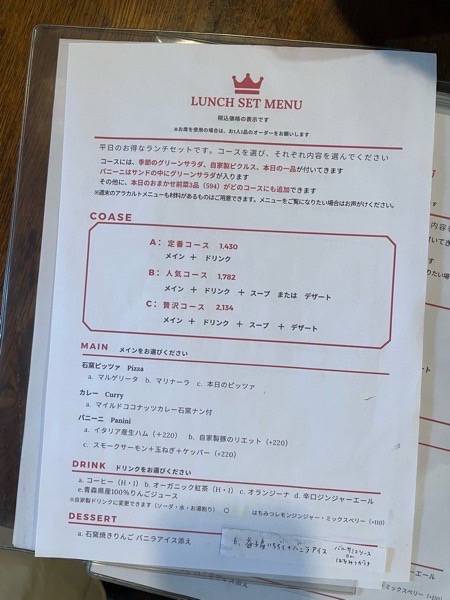 LUNCH SET MENU
税込価格の表示です
※お席を使用の場合は、お1人1品のオーダーをお願いします
平日のお得なランチセットです。コースを選び、それぞれ内容を選んでください
コースには、季節のグリーンサラダ、自家製ピクルス、本日の一品が付いてきます
パニーニはサンドの中にグリーンサラダが入ります
その他に、本日のおまかせ前菜3品（594）がどのコースにも追加できます
※週末のアラカルトメニューも材料があるものはご用意できます。メニューをご覧になりたい場合はお声がけください。
COASE
A： 定番コース 1,430
メイン ＋ ドリンク
B： 人気コース 1,782
メイン ＋ ドリンク ＋ スープ または デザート
C： 贅沢コース 2,134
メイン ＋ ドリンク ＋ スープ ＋ デザート
MAIN メインをお選びください
石窯ピッツァ Pizza
a. マルゲリータ b. マリナーラ c. 本日のピッツァ
カレー Curry
a. マイルドココナッツカレー石窯ナン付
パニーニ Panini
a. イタリア産生ハム（＋220） b. 自家製豚のリエット（+220）
c. スモークサーモン＋玉ねぎ＋ケッパー（+220）
DRINK ドリンクをお選びください
a. コーヒー（H・I） b. オーガニック紅茶（H・I） c. オランジーナ d. 辛口ジンジャーエール
e.青森県産100%りんごジュース
※自家製ドリンクに変更できます（ソーダ・水・お湯割り） はちみつレモンジンジャー・ミックスベリー（+110）
DESSERT
a. 石窯焼きりんご バニラアイス添え
バニラアイス